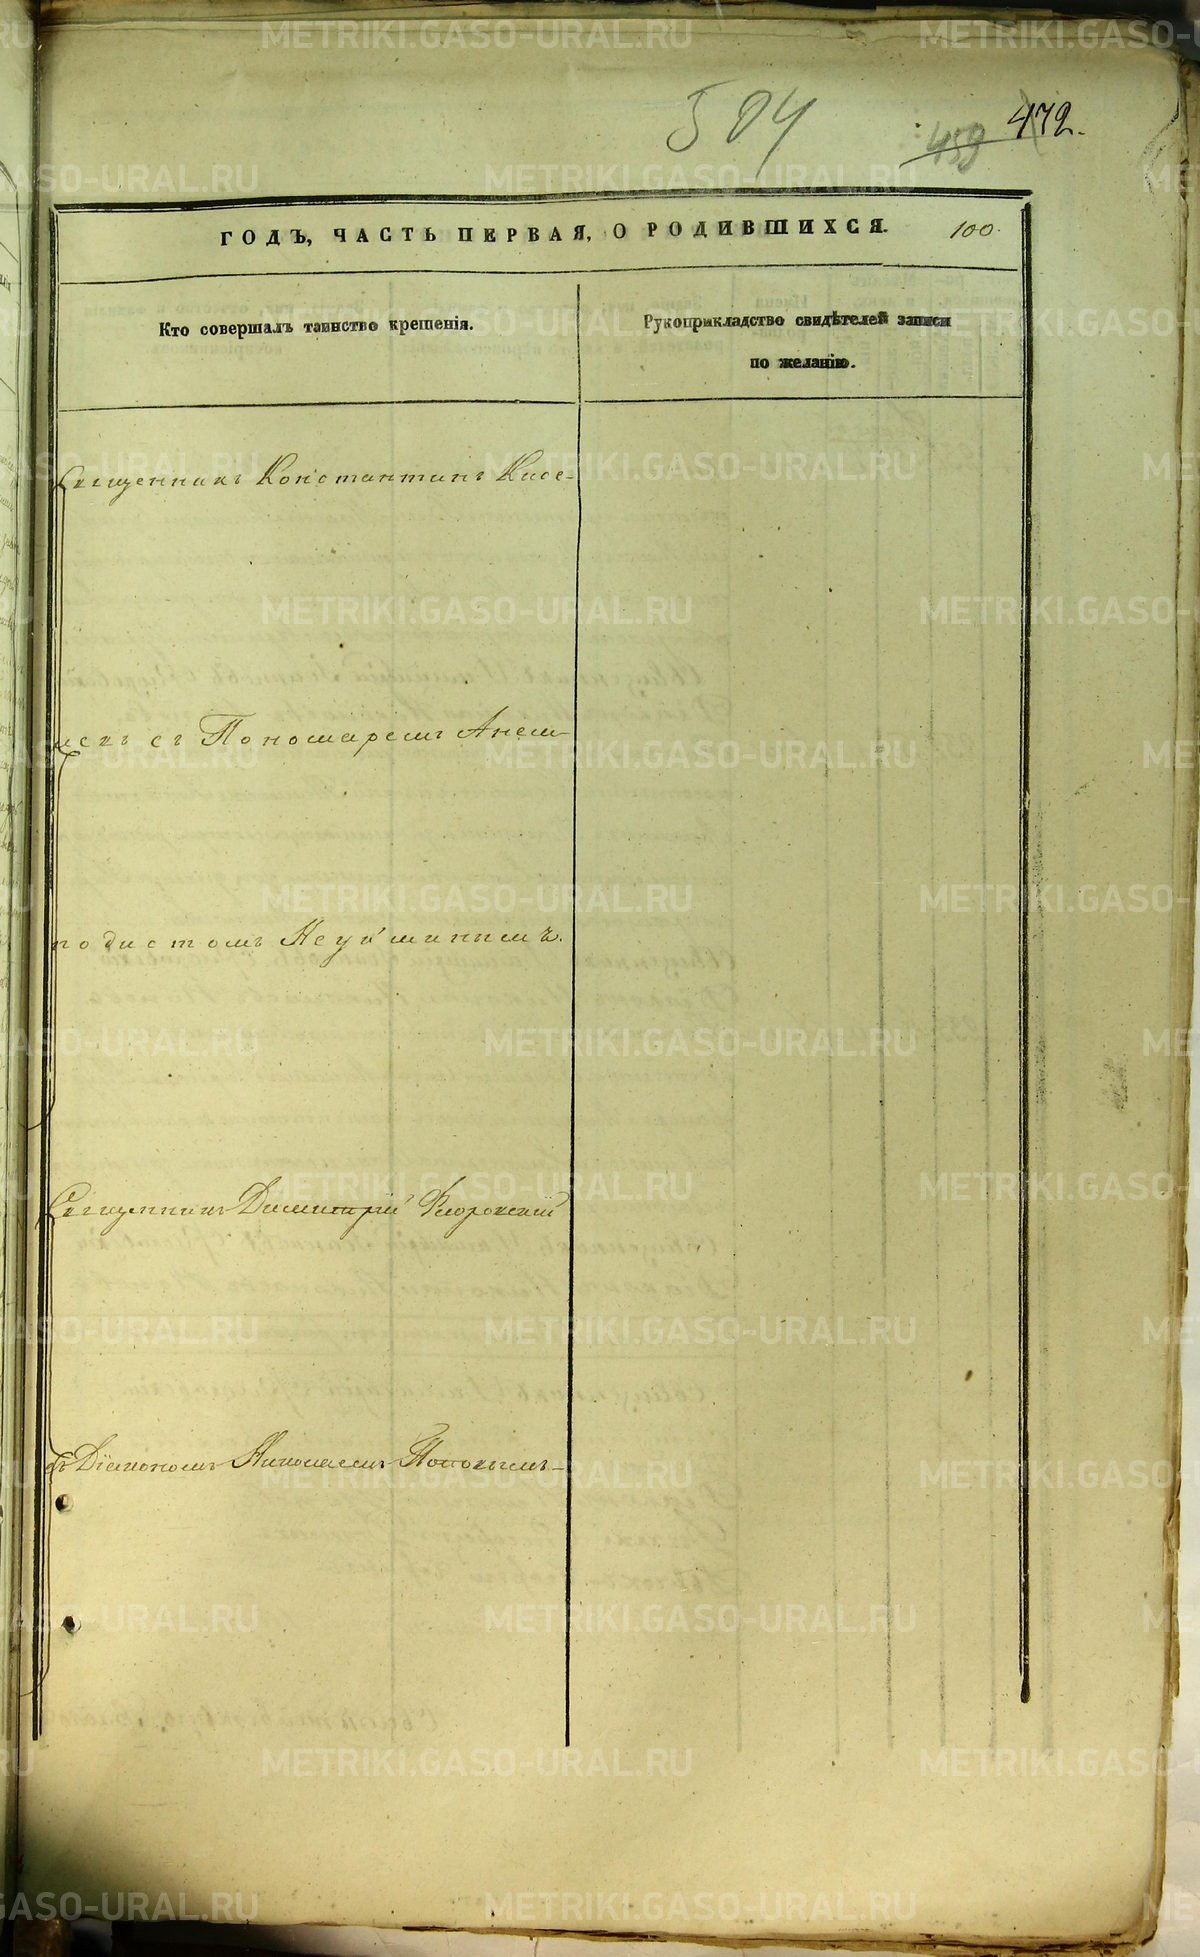 504
459 472.
ГОДЪ, ЧАСТЬ ПЕРВАЯ, О РОДИВШИХСЯ. 100.
Кто совершалъ таинство крещенія.
Рукоприкладство свидѣтелей записи
по желанію.
Священникъ Константинъ Кисе-
левъ съ Пономаремъ Анем-
подистомъ Неуйминымъ.
Священникъ Димитрій Флоровский
съ Діакономъ Николаемъ Поповымъ
METRIKI.GASO-URAL.RU